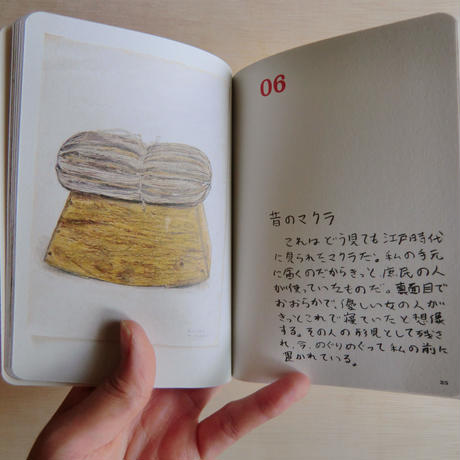 06
昔のマクラ
これはどう見ても江戸時代
に見られたマクラだ。私の手元
に届くのだからきっと庶民の人
が使っていたものだ。真面目で
おおらかで、優しい女の人が
きっとこれで寝ていたと想像
する。その人の形見として残さ
れ、今、めぐりめぐって私の前に
置かれている。